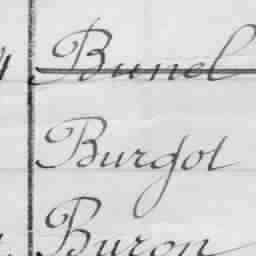 Bunel
Burgot
Buron